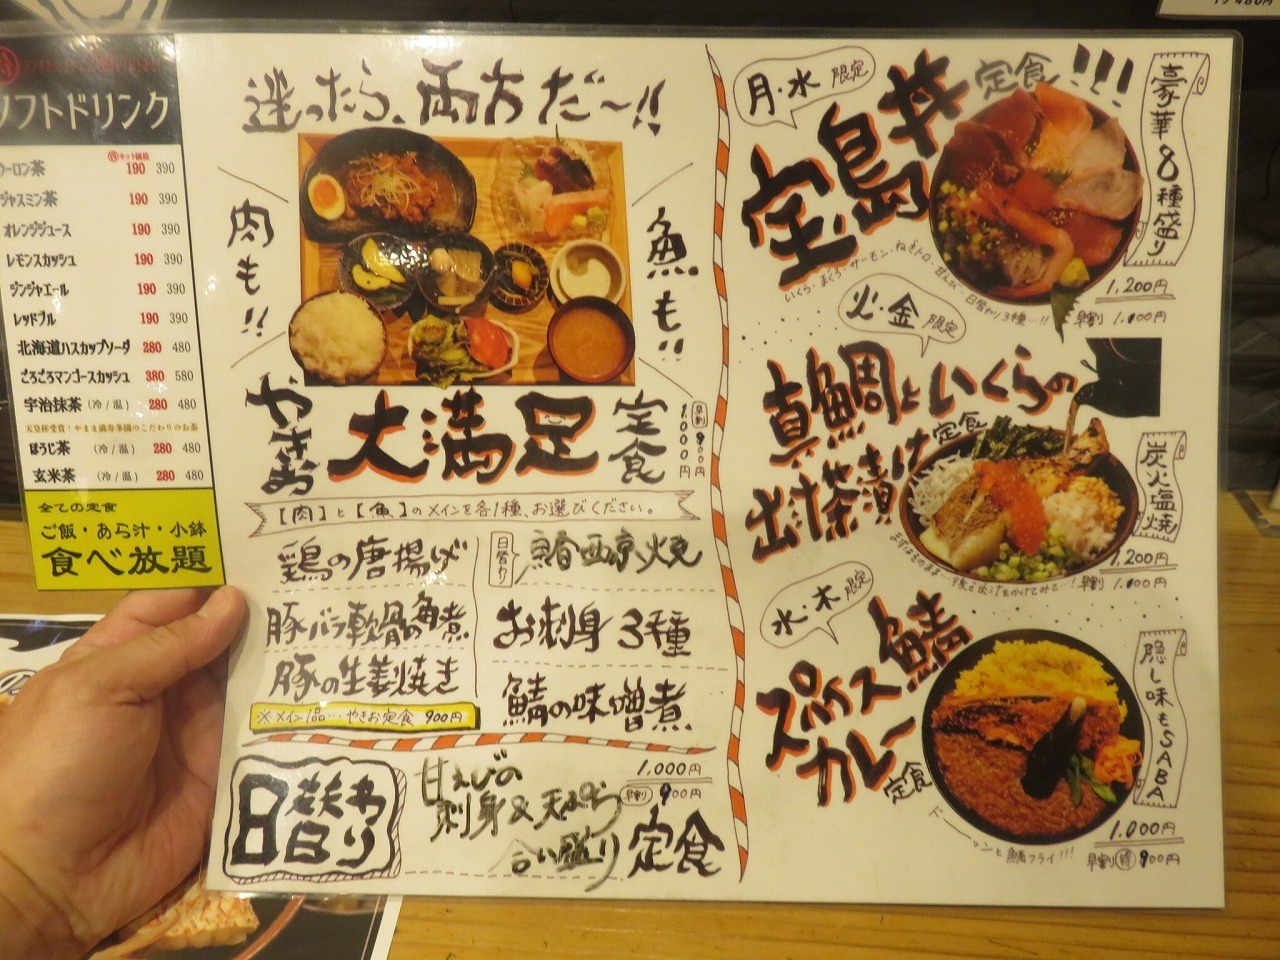 ソフトドリンク
セット価格
ウーロン茶 190 390
ジャスミン茶 190 390
オレンジジュース 190 390
レモンスカッシュ 190 390
ジンジャエール 190 390
レッドブル 190 390
北海道ハスカップソーダ 280 480
ごろごろマンゴースカッシュ 380 580
宇治抹茶(冷/温) 280 480
ほうじ茶 (冷/温) 280 480
玄米茶 (冷/温) 280 480
全ての定食
ご飯・あら汁・小鉢
食べ放題
迷ったら、両方だ〜!!
肉も!!
魚も!!
やきお
大満足
定食
1000円
早割 900円
【肉】と【魚】のメインを各1種、お選びください。
鶏の唐揚げ
豚バラ軟骨の角煮
豚の生姜焼き
※メイン1品…やきお定食 900円
日替り
西京焼
お刺身 3種
鯖の味噌煮
日替わり
甘えびの
刺身&天ぷら
合い盛り 定食
1,000円
早割 900円
月・水 限定
宝島丼 定食!!!
豪華8種盛り
いくら・まぐろ・サーモン・ねぎトロ・甘えび・日替わり3種…!!
1,200円
早割 1,100円
火・金 限定
真鯛といくらの
出汁茶漬け 定食
炭火塩焼
1,200円
早割 1,100円
水・木 限定
スパイス鯖
カレー 定食
隠し味もSABA
ドーーンと鯖フライ!!!
1,000円
早割 900円